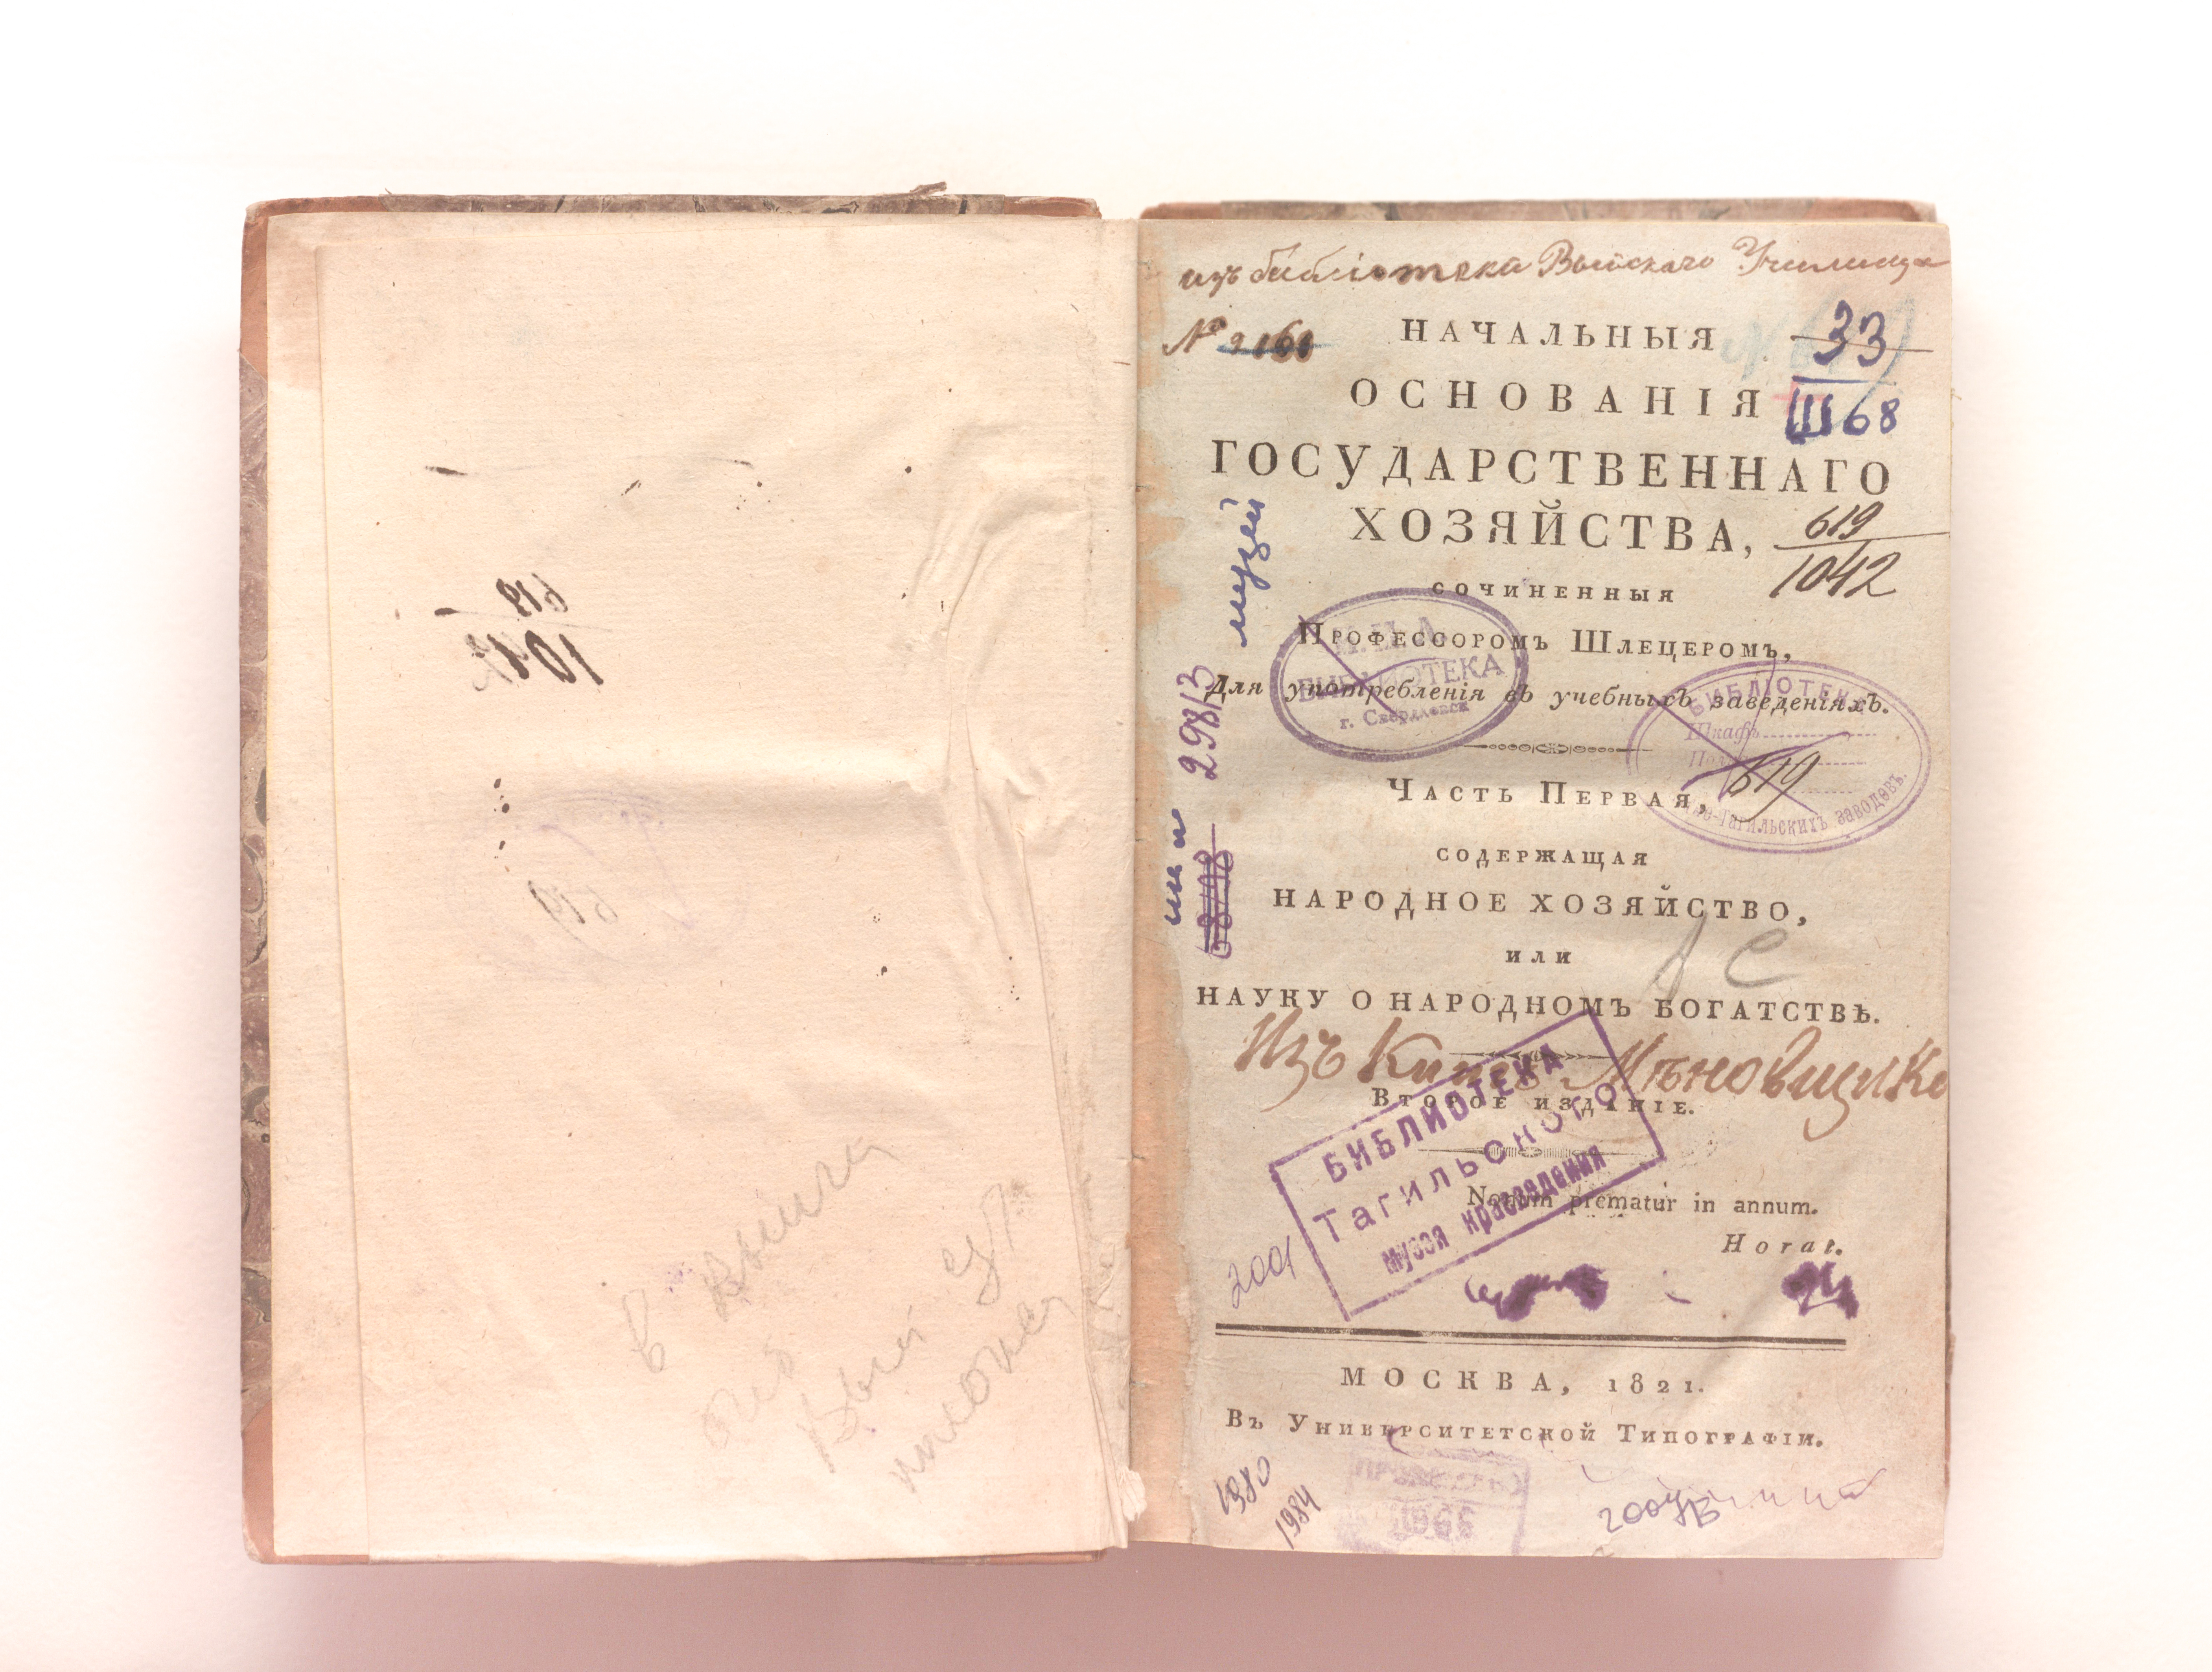 изъ библіотека Выйскаго Училища
№
НАЧАЛЬНЫЯ
33
ОСНОВАНІЯ
Ш68
ГОСУДАРСТВЕННАГО
ХОЗЯЙСТВА,
619
1042
сочиненныя
Профессоромъ Шлецеромъ,
Для употребленія въ учебныхъ заведеніяхъ.
БИБЛИОТЕКА
г. Свердловск
БИБЛІОТЕКА
Шкафъ
619
Тагильскихъ заводовъ.
музей
298/3
Часть Первая,
содержащая
НАРОДНОЕ ХОЗЯЙСТВО,
или
НАУКУ О НАРОДНОМЪ БОГАТСТВѢ.
Изъ Книгъ
Второе изданіе.
БИБЛИОТЕКА
Тагильского
музея краеведения
Nonum prematur in annum.
Horat.
2001
МОСКВА, 1821.
Въ Университетской Типографіи.
1980
1984